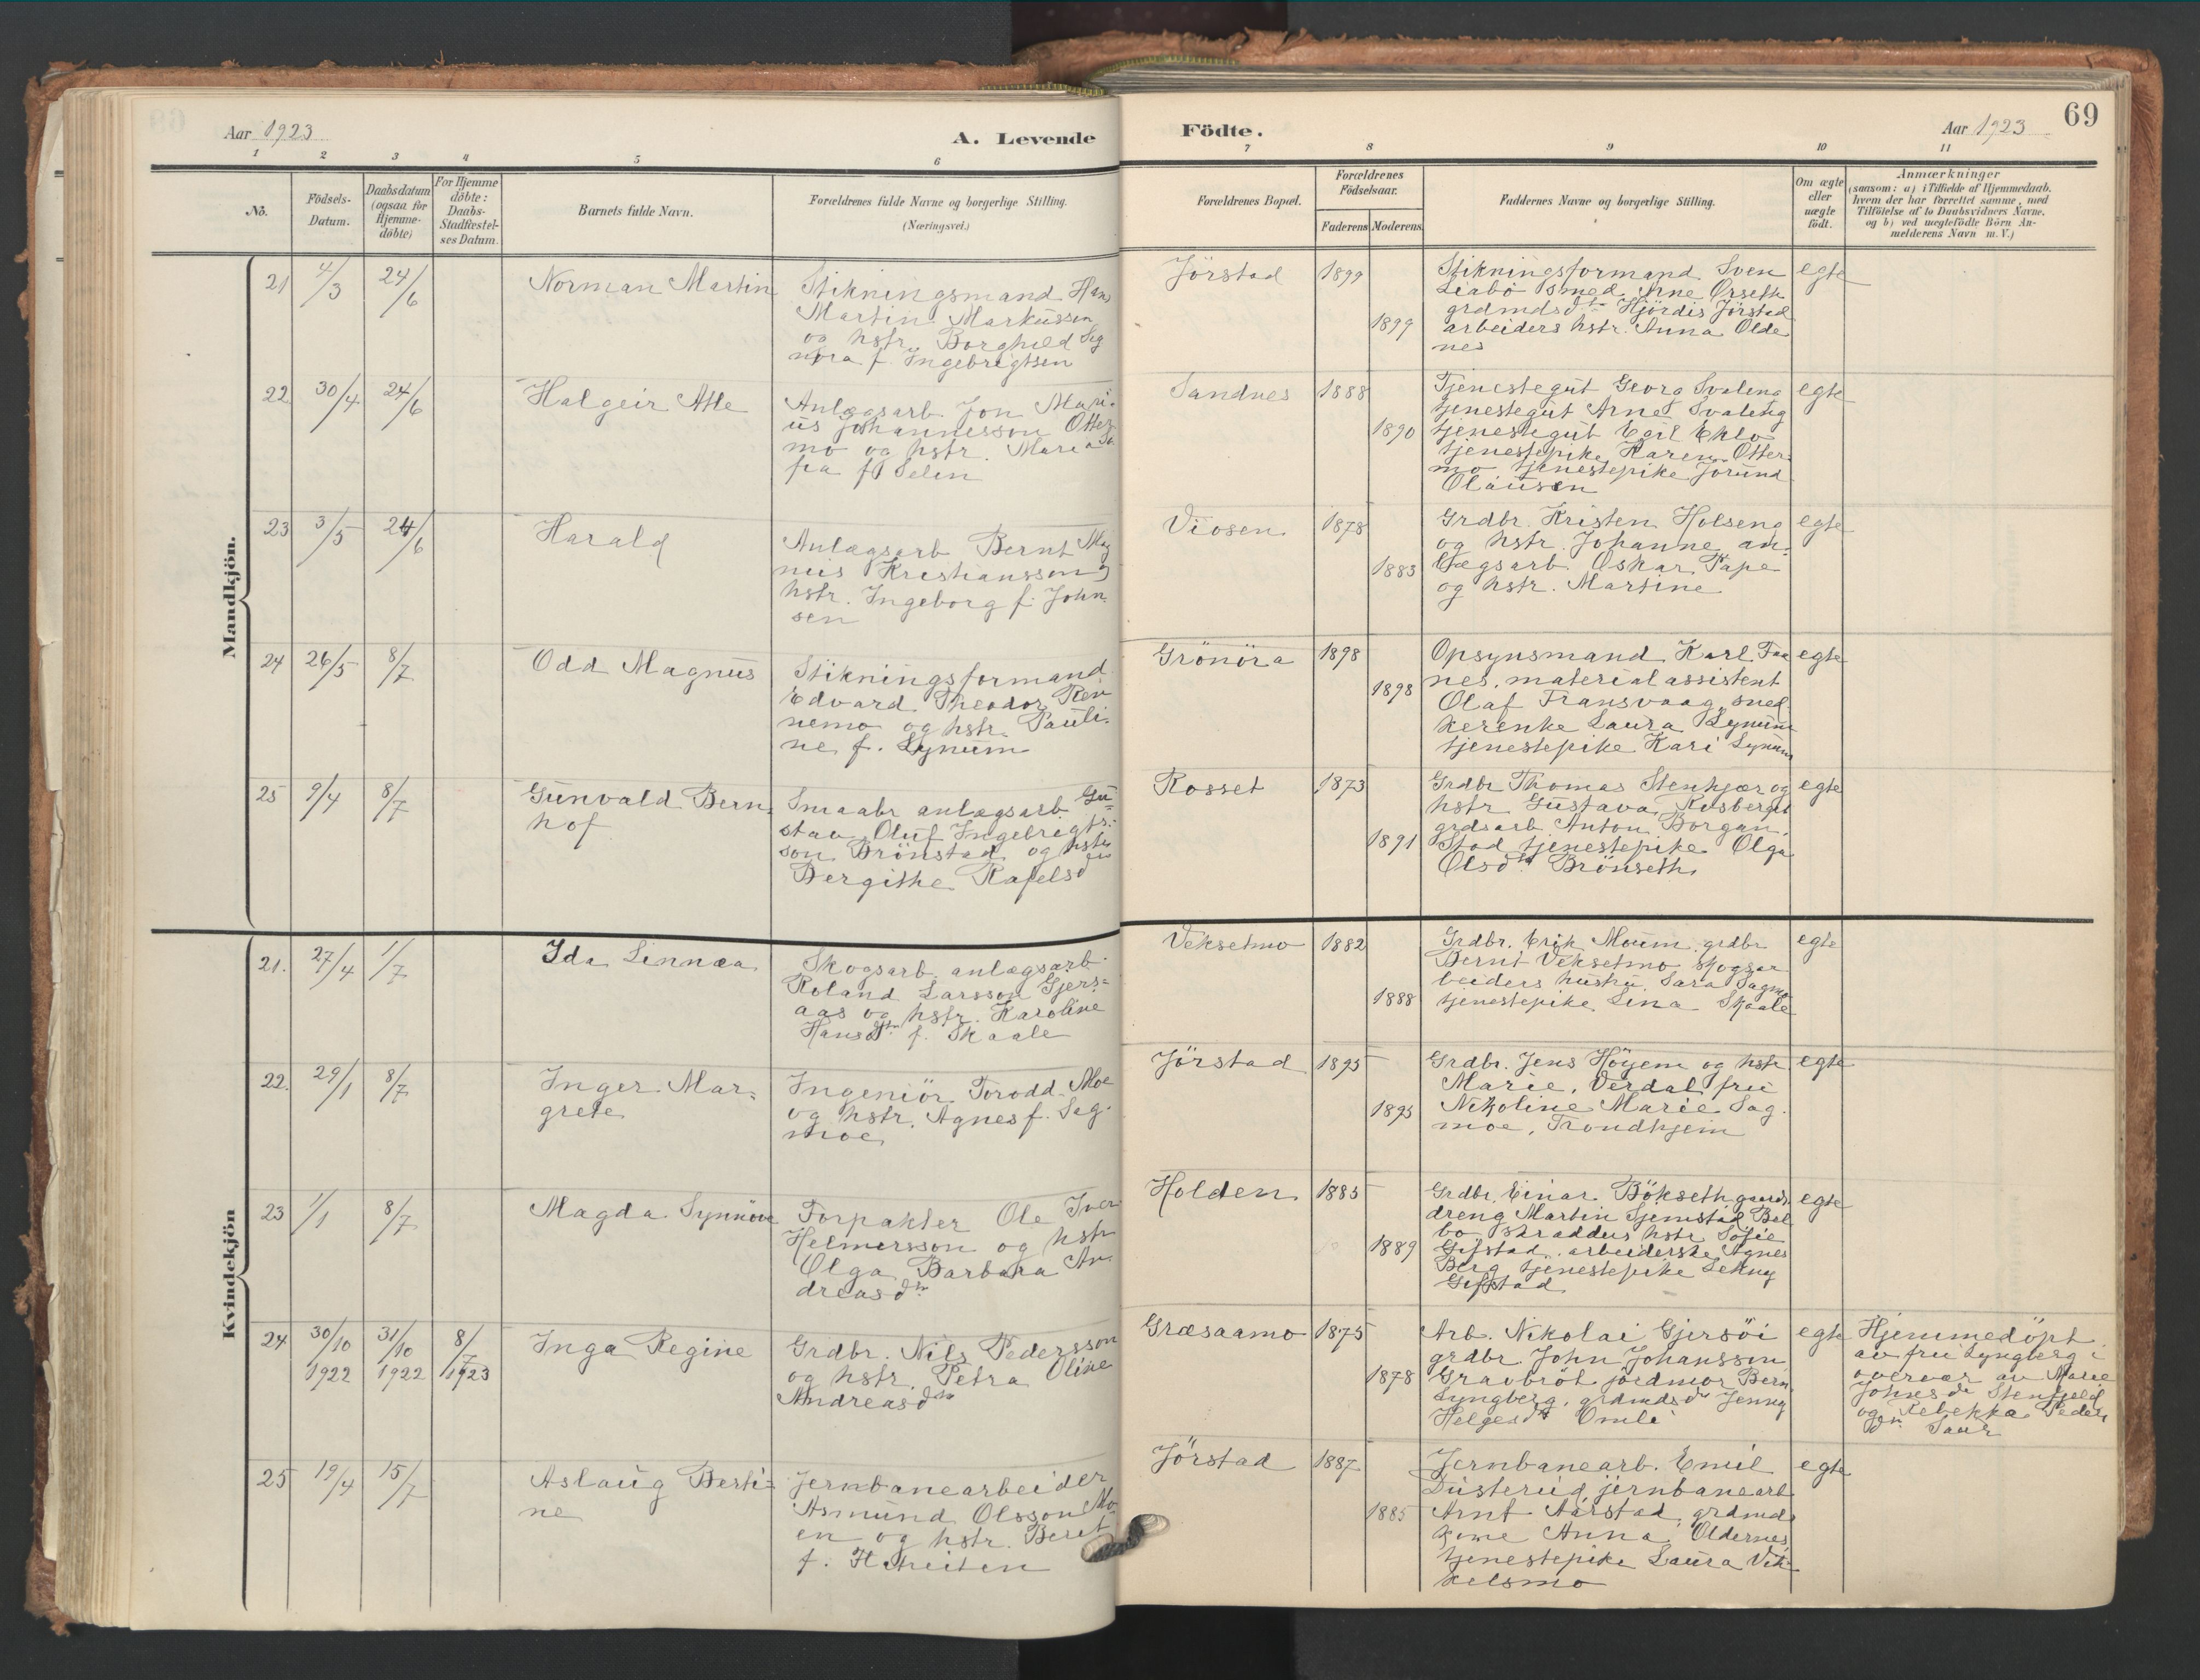 69
Aar 1923
A. Levende
Födte.
Aar 1923
1 2 3 4 5 6 7 8 9 10 11
No.
Födsels-
Datum.
Daabsdatum
(ogsaa for
Hjemme-
döbte)
For Hjemme
döbte:
Daabs-
Stadfæstel-
ses Datum.
Barnets fulde Navn.
Forældrenes fulde Navne og borgerlige Stilling.
(Næringsvei.)
Forældrenes Bopæl.
Forældrenes
Födselsaar.
Faderens Moderens
Faddernes Navne og borgerlige Stilling.
Om ægte
eller
uægte
födt.
Anmærkninger
(saasom: a) i Tilfælde af Hjemmedaab,
hvem der har forrettet samme, med
Tilföielse af to Daabsvidners Navne,
og b) ved uægtefödte Börn An-
melderens Navn m. V.)
Mandkjön.
21 4/3 24/6
Norman Martin
Stikningsmand Hans
Martin Markussen
og hstr. Borghild Sig
nora f. Ingebrigtsen
Jörstad
1899
1899
Stikningsformand Sven
Liabö smed Arne Orseth
grdmdsdtr Hjördis Jörstad
arbeiders hstr. Anna Olde
nes
egte
22 30/4 24/6
Halgeir Atle
Anlægsarb. Jon Mari-
us Johannesson Otter
mo og hstr. Maria Jo
fa f. Selen
Sandnes
1888
1890
Tjenestegut Georg Svaleng
tjenestegut Arne Svaleng
tjenestegut Egil Eklo
tjenestepike Karen Otter
mo, tjenestepike Jorund
Olausen
egte
23 3/5 24/6
Harald
Anlægsarb. Bernt Mag
nus Kristiansson og
hstr. Ingeborg f. John-
sen
Viosen
1878
1883
Grdbr. Kristen Holseng
og hstr. Johanne an-
lægsarb. Oskar Pape
og hstr. Martine
egte
24 26/5 8/7
Odd Magnus
Stikningsformand
Edvard Theodor Ren
nemo og hstr. Pauli-
ne f. Lynum
Grönöra
1898
1898
Opsynsmand Karl Faa
nes, materialassistent
Olaf Fransvaag, sned
kerenke Laura Lynum
tjenestepike Kari Lynum
egte
25 9/4 8/7
Gunvald Bern-
hof
Smaabr. anlægsarb. Gu-
stav Oluf Ingebrigts-
son Brönstad og hstr
Bergithe Rafelsdtr
Rosset
1873
1891
Grdbr Thomas Stenkjær og
hstr Gustava, Rusberget
grdsarb. Anton Borgan,
Stod tjenestepike Olga
Olsdtr Brönseth
egte
Kvindekjön
21. 27/4 1/7
Ida Linnæa
Skogsarb. anlægsarb.
Roland Larsson Gjers-
aas og hstr. Karoline
Hansdtr. f. Skaale
Veksetmo
1882
1888
Grdbr. Erik Moum grdbr
Bernt Veksetmo skogsar
beiders hustru Sara Sagmo
tjenestepike Lina Skaale
egte
22. 29/1 8/7
Inger Mar-
grete
Ingeniör Torodd Moe
og hstr. Agnes f. Sag-
moe
Jörstad
1895
1895
Grdbr. Jens Höyem og hstr
Marie, Verdal, frue
Nikoline Marie Sag-
moe, Trondhjem
egte
23 1/1 8/7
Magda Synnöve
Forpakter Ole Iver
Helmersson og hstr
Olga Barbara An-
dreasdtr
Holden
1885
1889
Grdbr. Einar Bökseth gaards
dreng Martin Sjemstad Bel
bo skrædders hstr Sofie
Gifstad, arbeiderske Agnes
Berg tjenestepike
Gifstad
egte
24 30/10 1922 31/10 1922 8/7 1923
Inga Regine
Grdbr. Nils Pedersson
og hstr. Petra Oline
Andreasdtr
Græsaamo
1875
1878
Arb. Nikolai Gjersöi
grdbr. John Johansson
Gravbröt jordmor Bern.
Lyngberg, grdmdsdtr Jenny
Helgesdtr Omli
egte
Hjemmedöpt
av fru Lyngberg i
overvær av Marie
Johnsdtr Stenfjeld
og Rebekka Peders
dtr Saur
25 19/4 15/7
Aslaug Berti-
ne
Jernbanearbeider
Asmund Olsson Mo-
en og hstr. Beret
f.
Jörstad
1887
1885
Jernbanearb. Emil
Dusterud, jernbanearb
Arnt Aarstad, grdmds
kone Anna Oldernes
tjenestepike Laura Vek-
kelsmo
egte